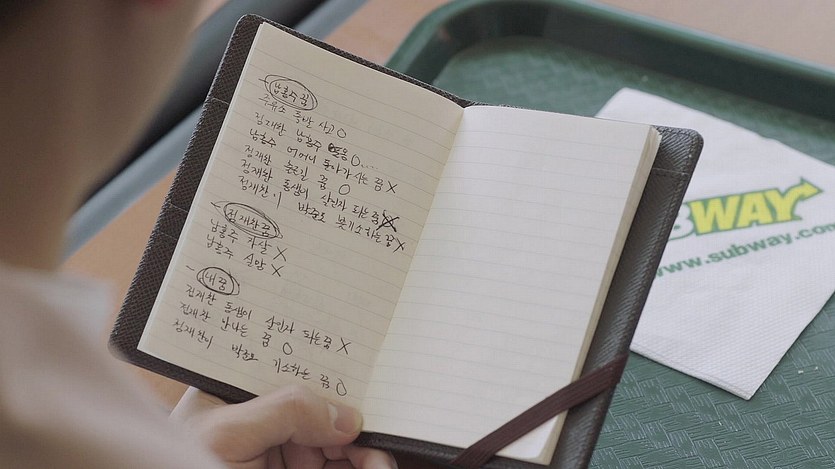 - 남홍주 꿈
주유소 폭발 사고 O
정재찬 남홍주 포옹 O....
남홍주 어머니 돌아가시는 꿈 X
정재찬 눈온길 꿈 O
정재찬 동생이 살인자 되는 꿈 X
정재찬이 박준모 불기소하는 꿈 X
- 정재찬 꿈
남홍주 자살 X
남홍주 실망 X
- 내 꿈
정재찬 동생이 살인자 되는 꿈 X
정재찬 만나는 꿈 O
정재찬이 박준모 기소하는 꿈 O
BWAY
www.subway.com